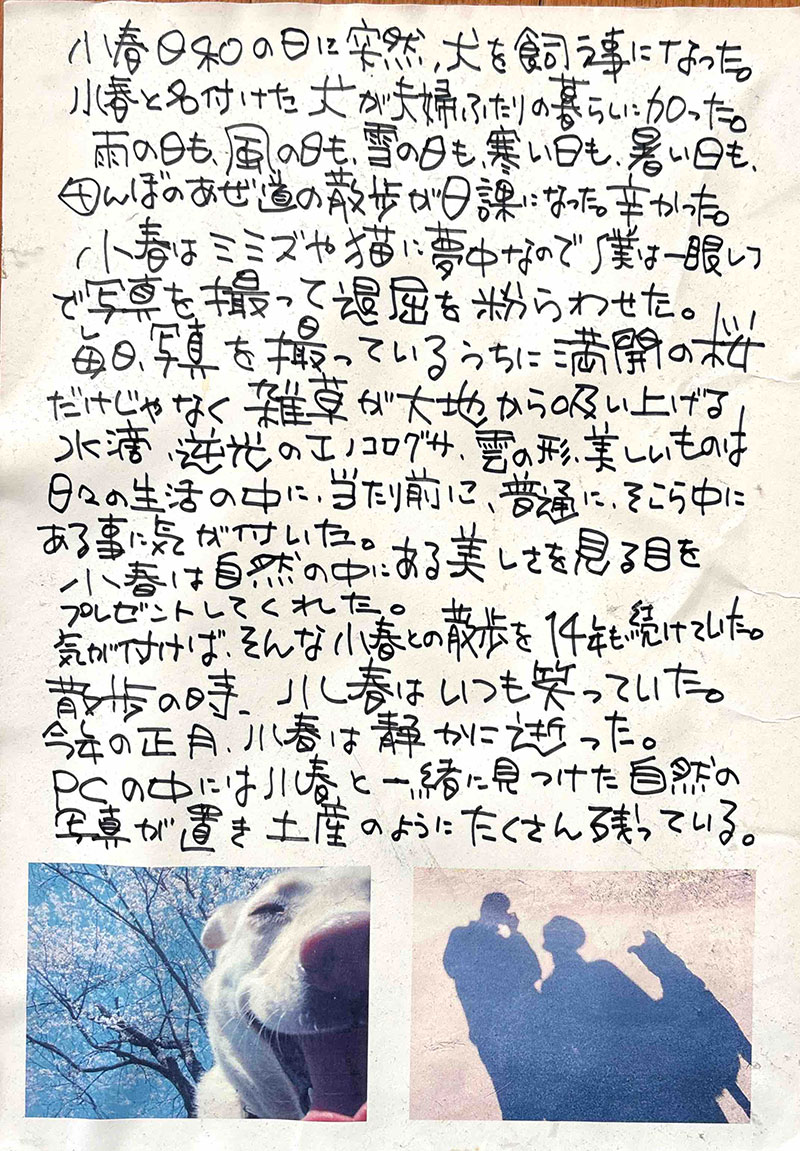 小春日和の日に突然、犬を飼う事になった。
小春と名付けた犬が夫婦ふたりの暮らしに加った。
雨の日も、風の日も、雪の日も、寒い日も、暑い日も、
田んぼのあぜ道の散歩が日課になった。辛かった。
小春はミミズや猫に夢中なので僕は一眼レフ
で写真を撮って退屈を粉らわせた。
毎日、写真を撮っているうちに満開の桜
だけじゃなく雑草が大地から吸い上げる
水滴、逆光のエノコログサ、雲の形、美しいものは
日々の生活の中に、当たり前に、普通に、そこら中に
ある事に気が付いた。
小春は自然の中にある美しさを見る目を
プレゼントしてくれた。
気が付けば、そんな小春との散歩を14年も続けていた。
散歩の時、小春はいつも笑っていた。
今年の正月、小春は静かに逝った。
PCの中には小春と一緒に見つけた自然の
写真が置き土産のようにたくさん残っている。